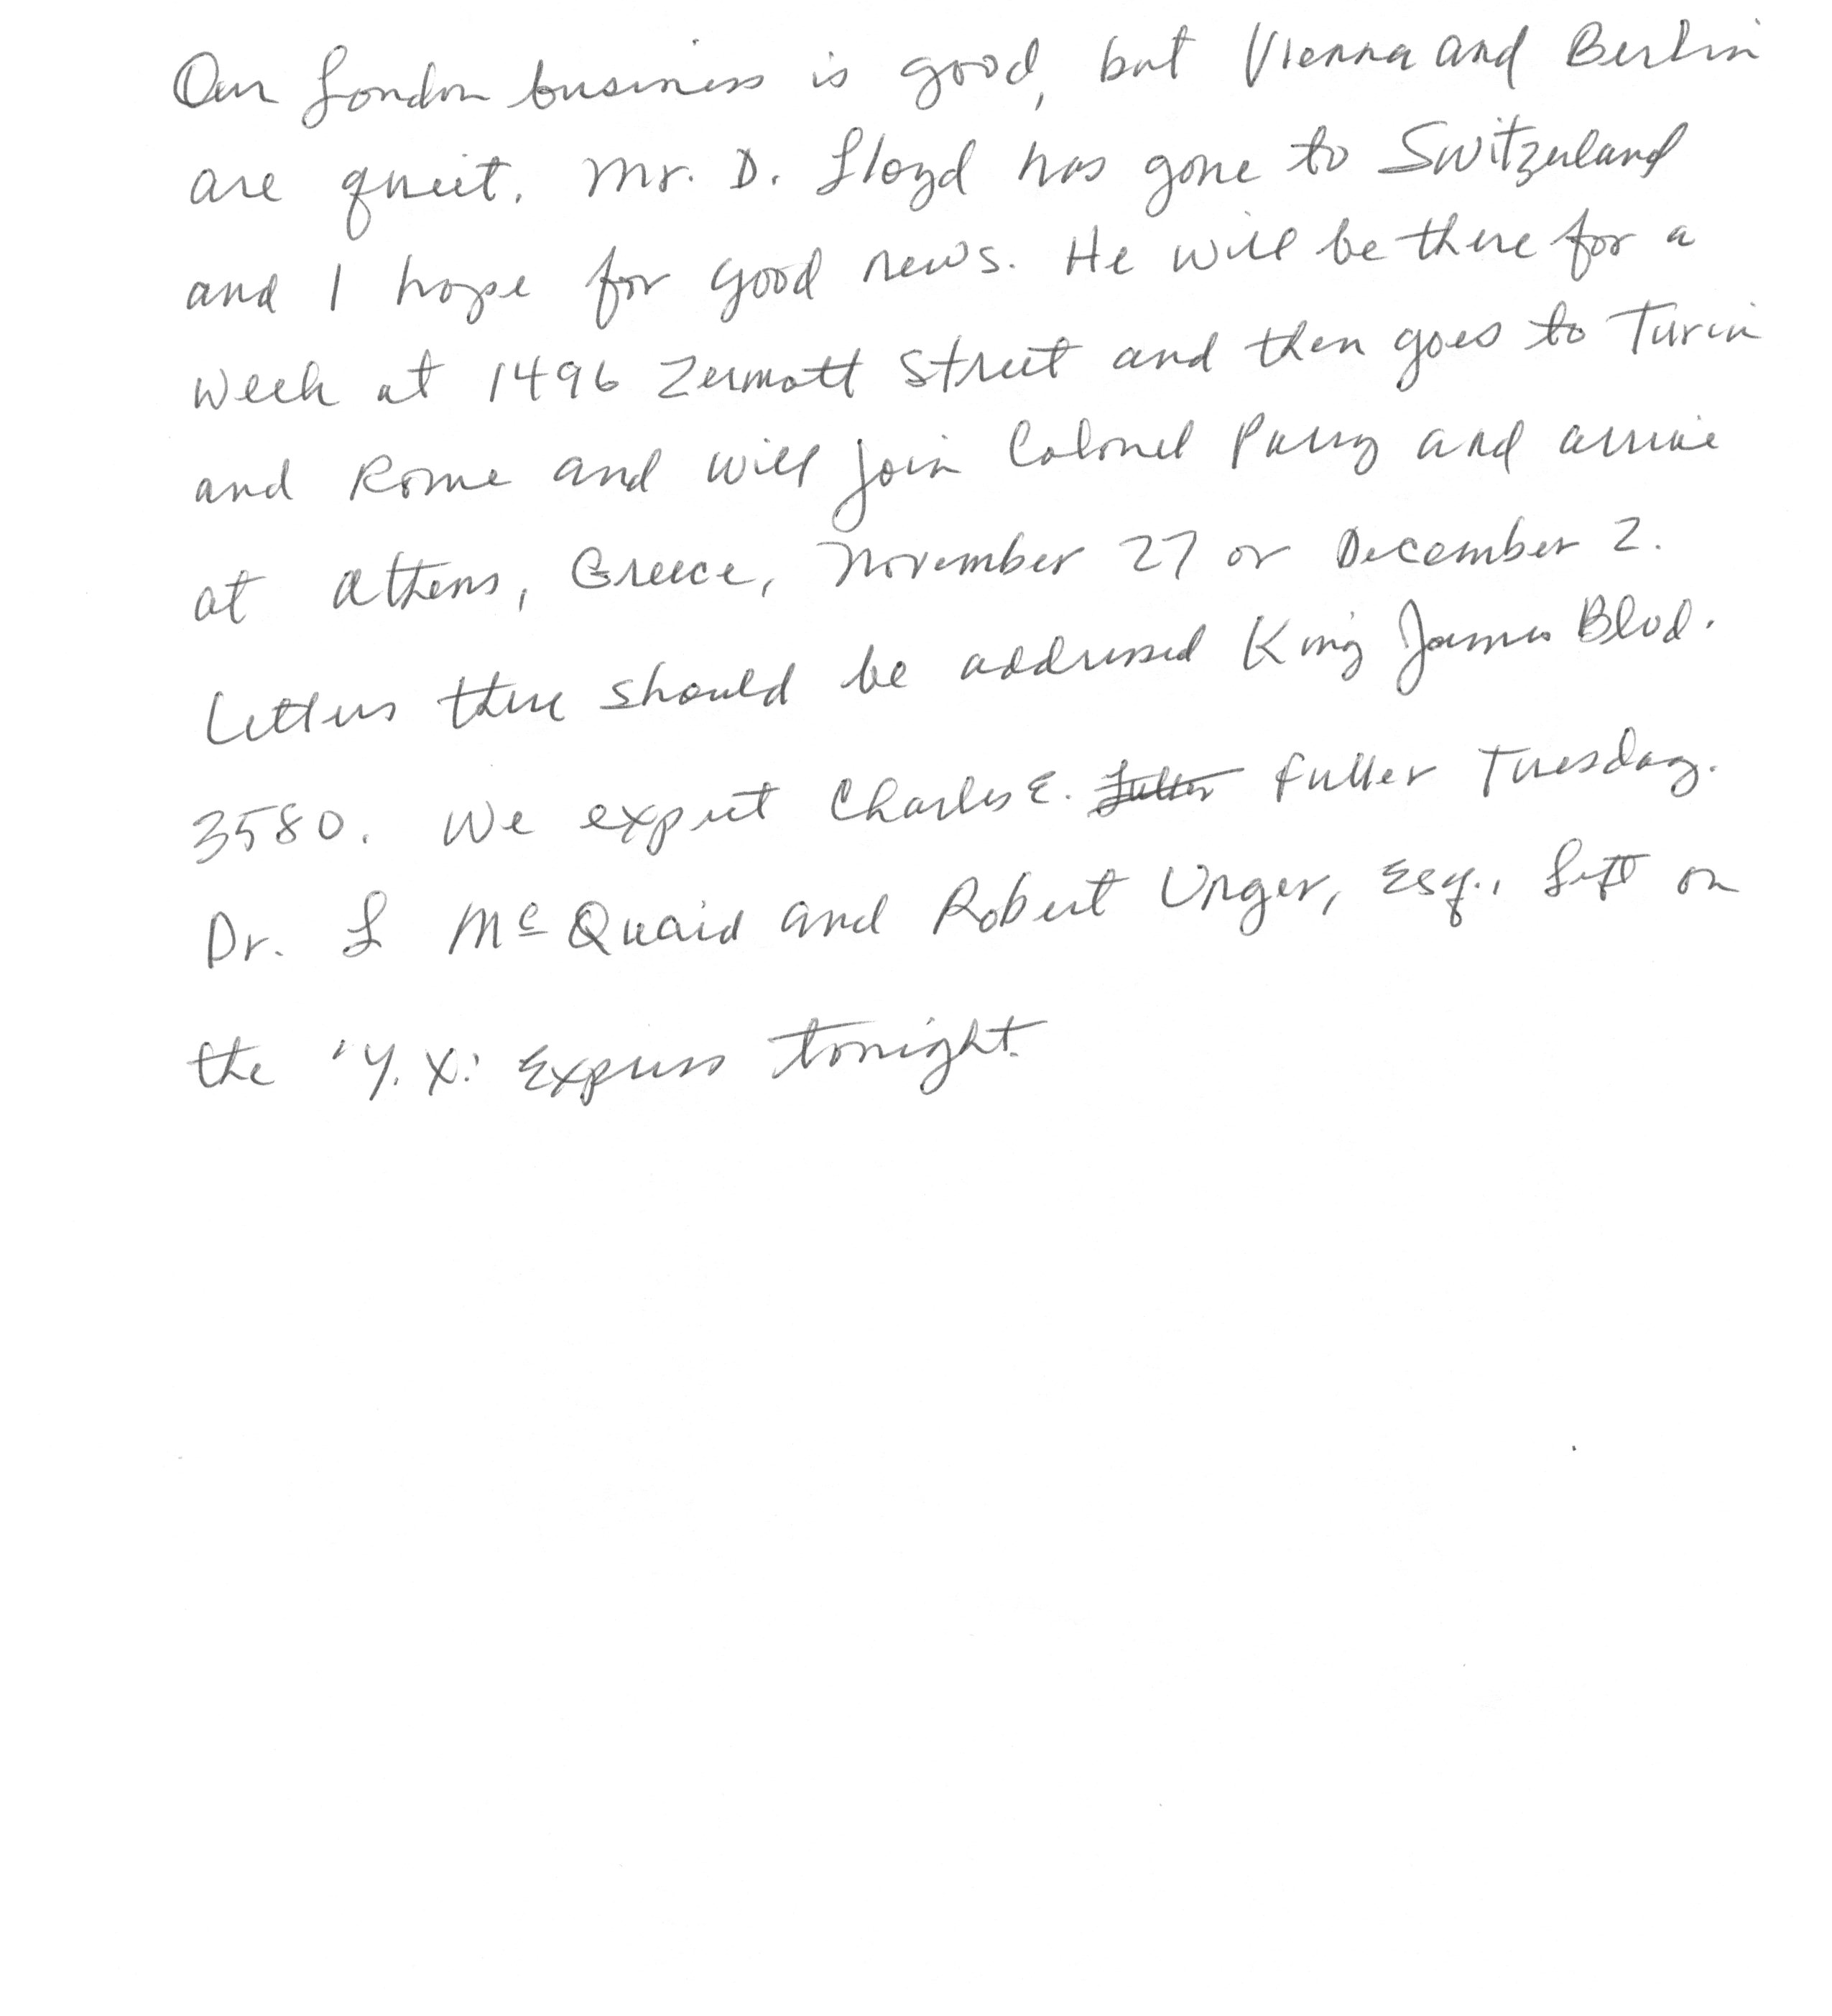 Our London business is good, but Vienna and Berlin
are quiet. Mr. D. Lloyd has gone to Switzerland
and I hope for good news. He will be there for a
week at 1496 Zermott Street and then goes to Turin
and Rome and will join Colonel Parry and arrive
at Athens, Greece, November 27 or December 2.
Letters there should be addressed King James Blvd.
3580. We expect Charles E. Fuller Tuesday.
Dr. L McQuaid and Robert Unger, Esq., left on
the 'Y. X.' Express tonight.